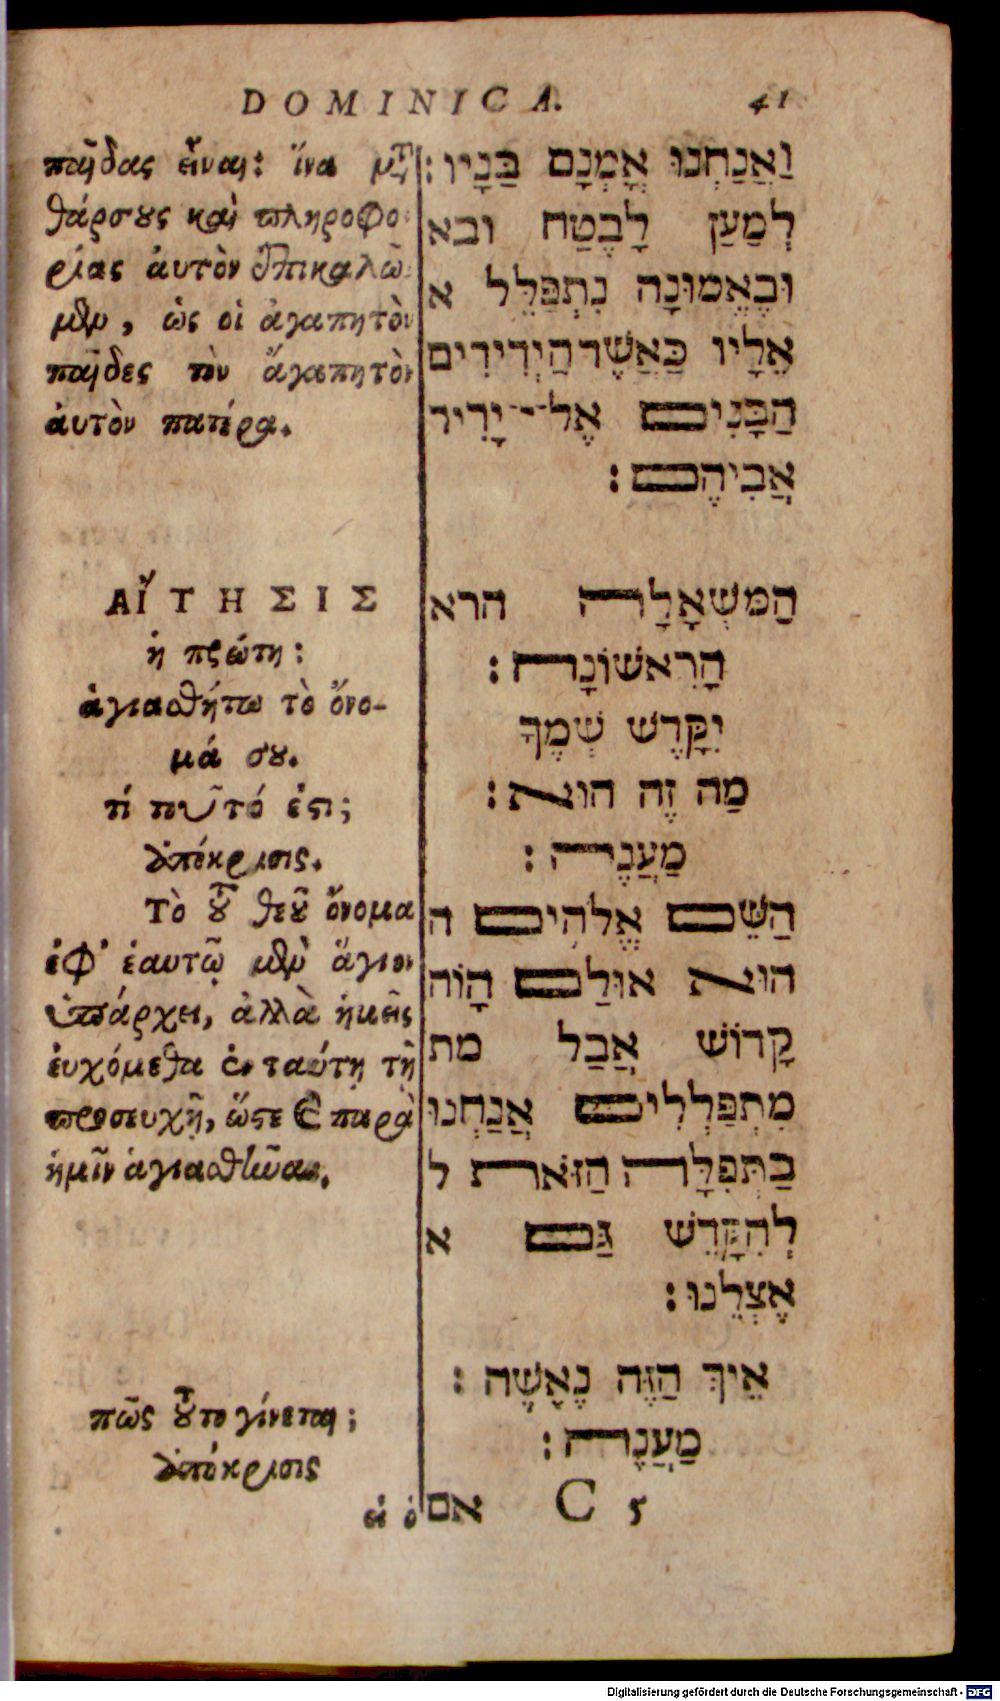 DOMINICA. 41
παῖδας εἶναι: ἵνα μετὰ
θάρσους καὶ πληροφο-
ρίας ἀυτὸν ἐπικαλῶ-
μεν, ὡς οἱ ἀγαπητοὶ
παῖδες τὸν ἀγαπητὸν
ἀυτὸν πατέρα.
ΑἼΤΗΣΙΣ
ἡ πρώτη:
ἁγιασθήτω τὸ ὄνο-
μά σου.
τί τοῦτό ἐστι;
ἀπόκρισις.
Τὸ τοῦ θεοῦ ὄνομα
ἐφ' ἑαυτῷ μὲν ἅγιον
ὑπάρχει, ἀλλὰ ἡμεῖς
ἐυχόμεθα ἐν ταύτῃ τῇ
προσευχῇ, ὥστε καὶ παρὰ
ἡμῖν ἁγιασθῆναι.
πῶς τοῦτο γίνεται;
ἀπόκρισις
εἰ ὁ
וַאֲנַחְנוּ אֳמְנָם בַּנָיו:
לְמַעַן לָבֶטַח ובא
וּבֶאֱמוּנָה נִתְפַּלֵּל א
אֵלָיו כַּאֲשֶׁר הַיְדִידִים
הַבָּנִים אֶל־יָדִיד
אֲבִיהֶם:
הַמִּשְׁאָלָה הרא
הָרִאשׁוֹנָה:
יִקָּדֶשׁ שְׁמֶךָ
מַה זֶה הוּא:
מַעֲנֶה:
הַשֵּׁם אֱלֹהִים ה
הוּא אוּלַם הָוֹה
קָדוֹשׁ אֲבַל מת
מִתְפַּלְלִים אֲנַחְנוּ
בַתְּפִלָּה הַזֹּאת ל
לְהִקָּדֵשׁ גַּם א
אֶצְלֵנוּ:
אֵיךְ הַזֶּה נֶאָשֶׂה:
מַעֲנֶה:
C 5 אם